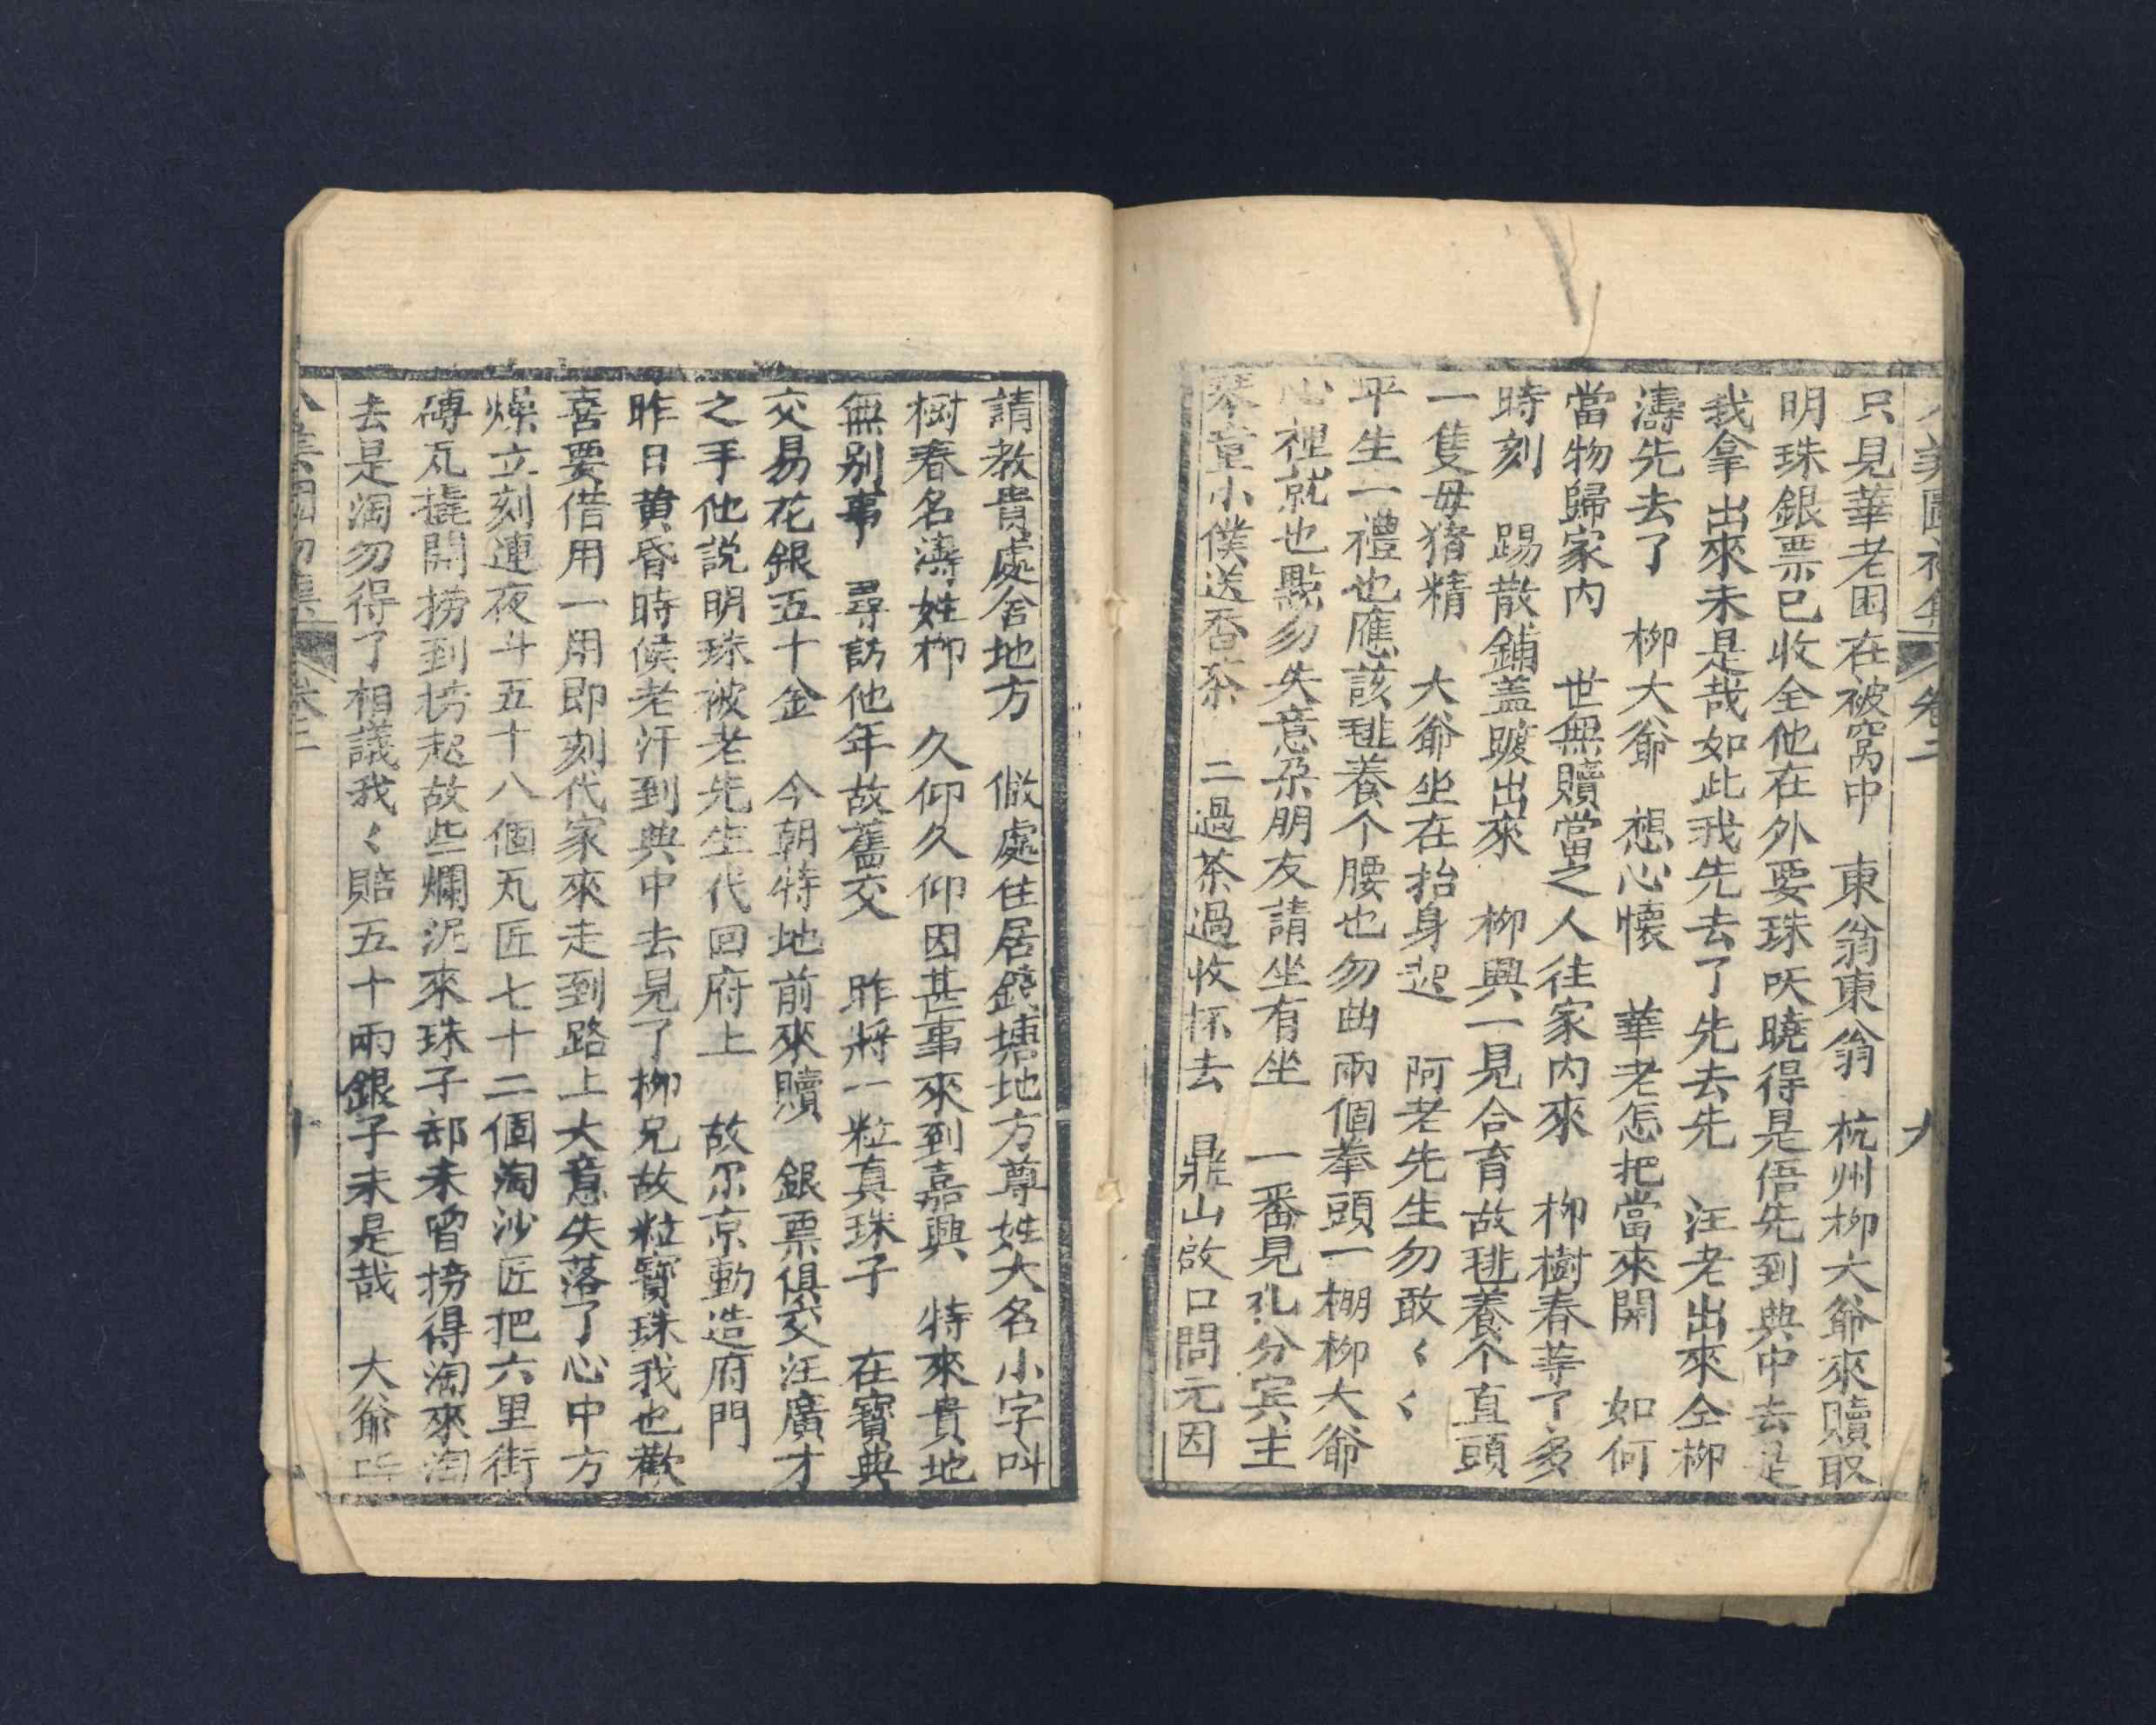 美圖 卷二
只見華老困在被窩中 東翁東翁 杭州柳大爺來贖取
明珠銀票已收全他在外要珠昃曉得是俉先到典中去是
我拿出來未是哉如此我先去了先去先 汪老出來仝柳
濤先去了 柳大爺 想心懷 華老怎把當來開 如何
當物歸家內 世無贖當之人往家內來 柳樹春等了多
時刻 踢散鋪盖踱出來 柳興一見合育故毴養个直頭
一隻毋猪精 大爺坐在抬身起 阿老先生勿敢〻〻
平生一禮也應該毴養个腰也勿曲兩個拳頭一棚柳大爺
心裡就也㸃勿失意朶朋友請坐有坐 一番見礼分宾主
琴童小僕送香茶 二過茶過收杯去 鼎山啟口問元因
請教貴處舍地方 僘處住居錢塘地方尊姓大名小字叫
樹春名濤姓柳 久仰久仰因甚事來到嘉興 特來貴地
無别事 尋訪他年故舊交 昨將一粒真珠子 在寳典
交易花銀五十金 今朝特地前來贖 銀票俱交汪廣才
之手他説明珠被老先生代回府上 故尔京動造府門
昨日黄昏時候老汗到典中去見了柳兄故粒寳珠我也歡
喜要借用一用即刻代家來走到路上大意失落了心中方
燥立刻連夜斗五十八個瓦匠七十二個淘沙匠把六里街
磚瓦撬開撈到撈起故些爛泥來珠子部未曾撈得淘來淘
去是淘勿得了相議我〻賠五十兩銀子未是哉 大爺
美圖初集 卷二